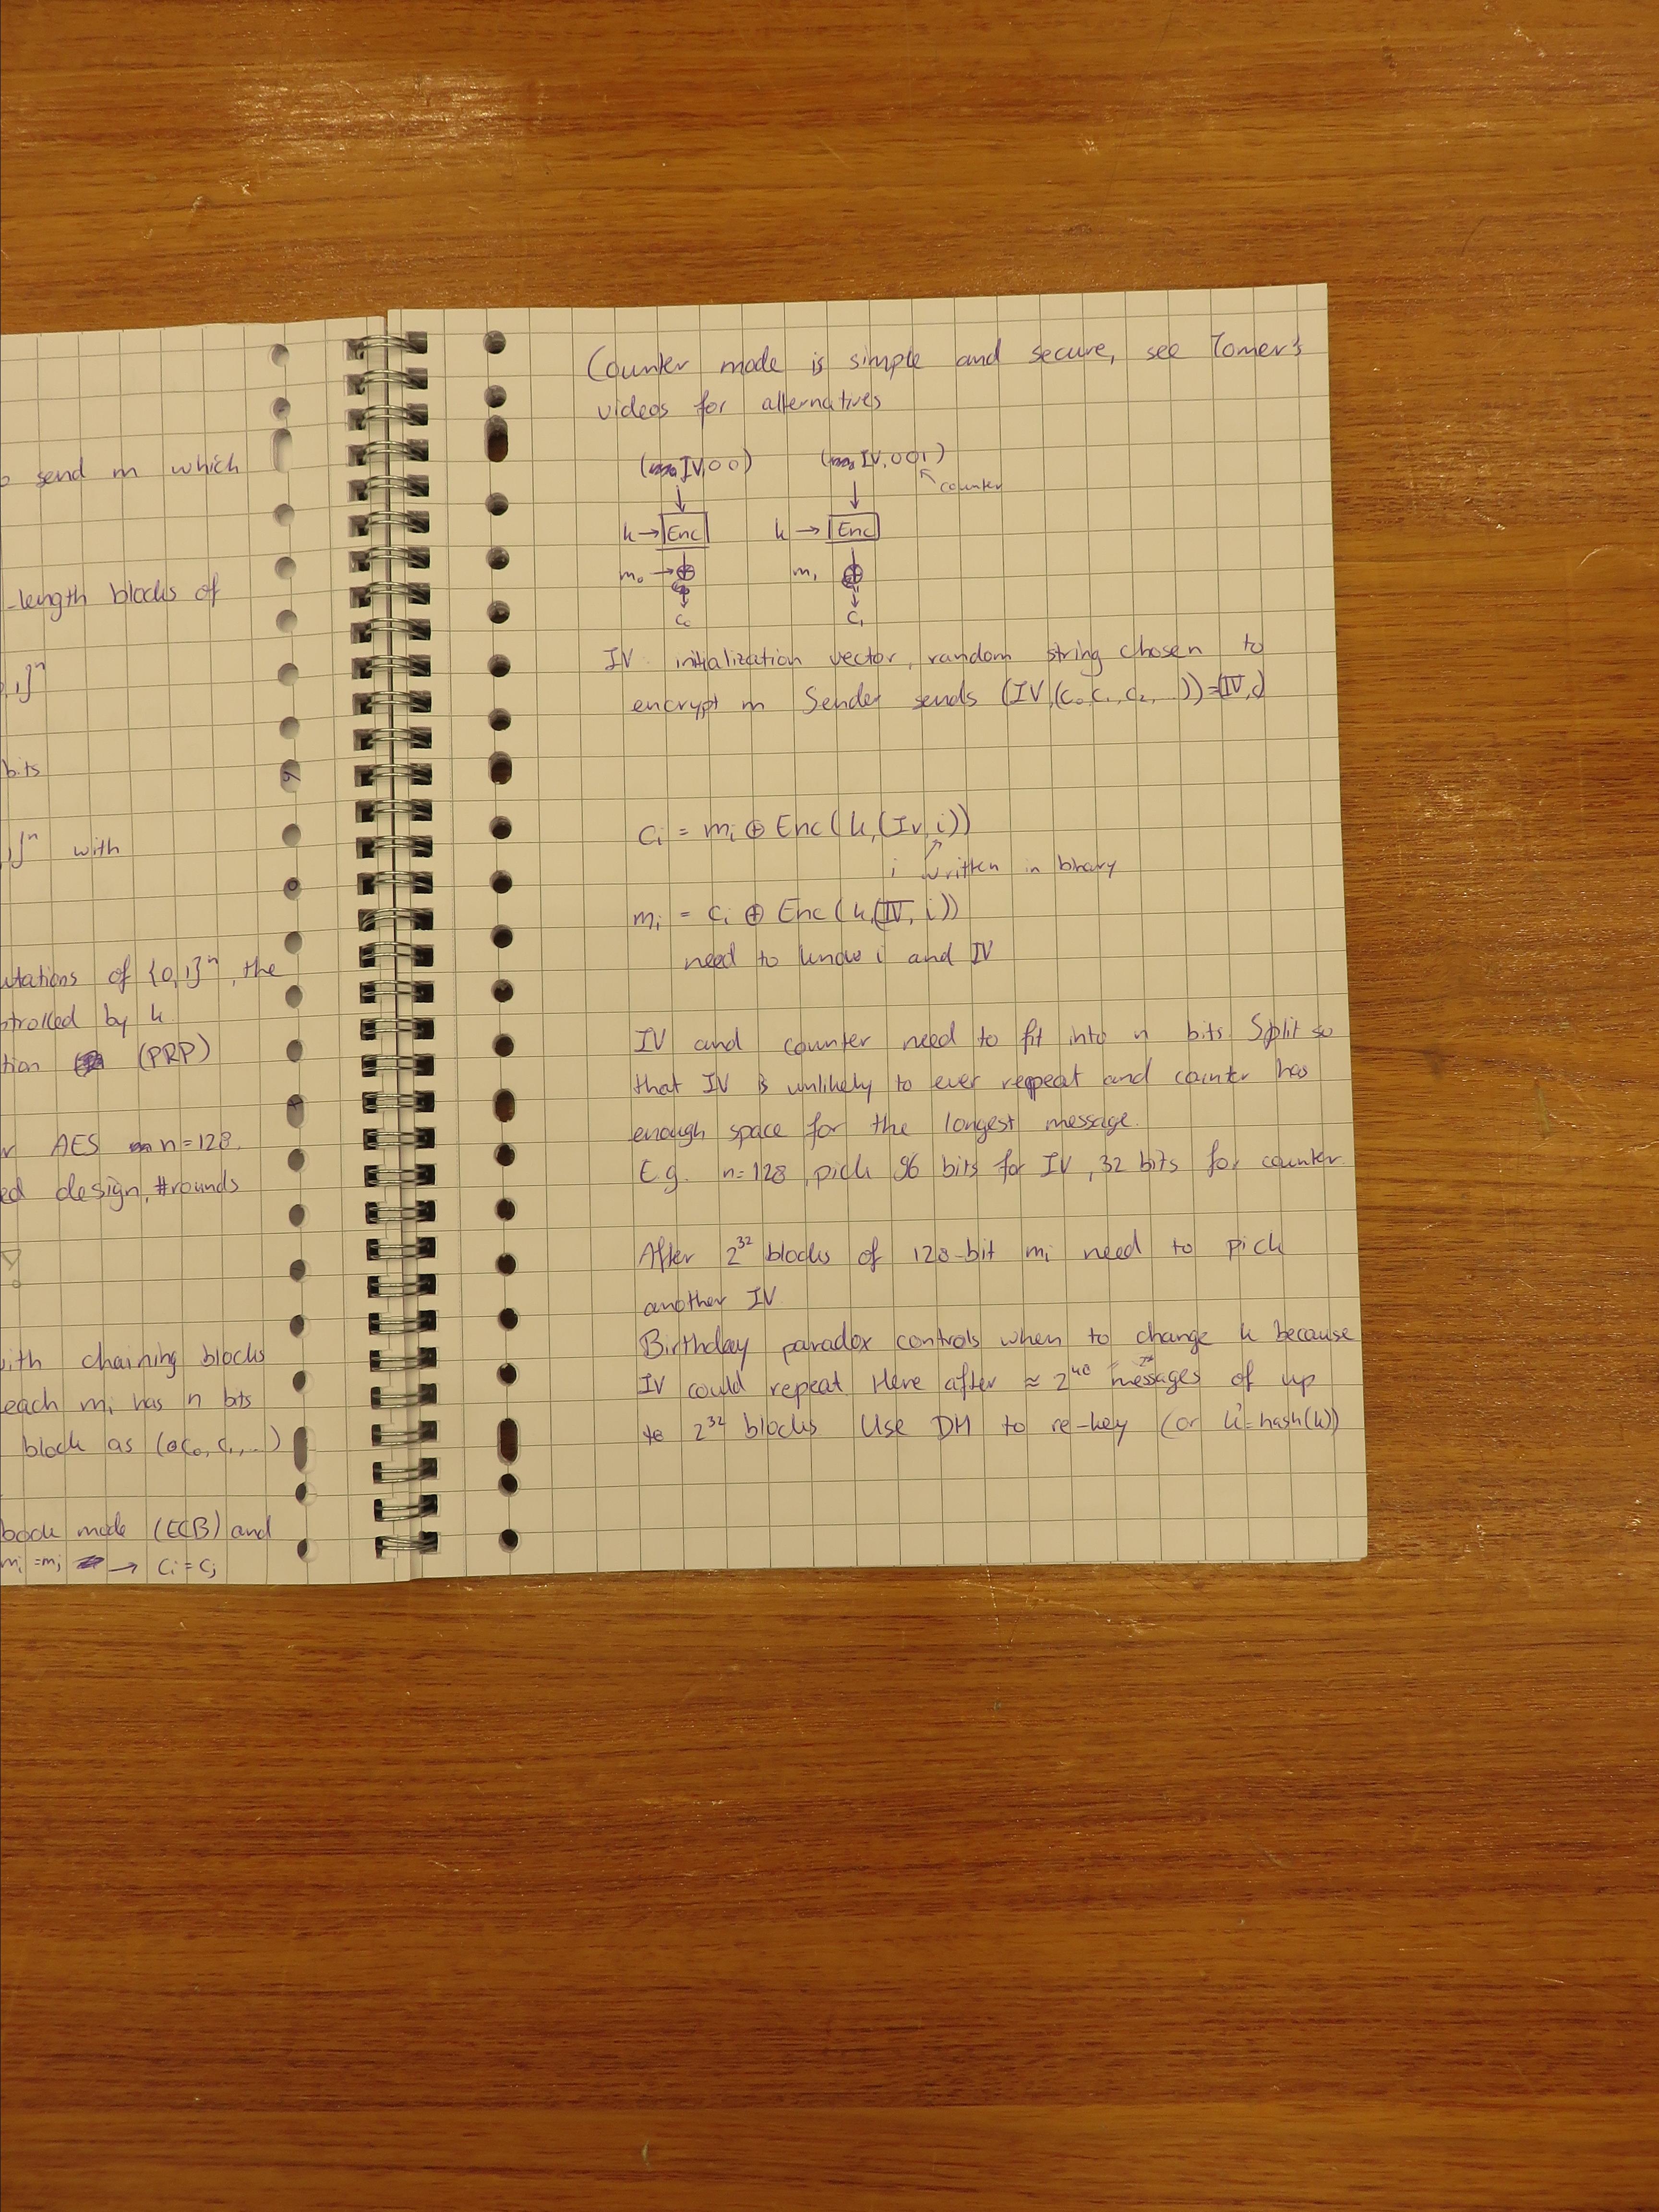 o send m which
-length blocks of
,1}^n
bits
,1}^n with
utations of {0,1}^n, the
ntrolled by k
tion (PRP)
r AES n=128.
ed design, #rounds
with chaining blocks
each m_i has n bits
block as (c_0, c_1, ..)
book mode (ECB) and
m_i = m_j → c_i = c_j
Counter mode is simple and secure, see Tomer's
videos for alternatives
(IV,00) (IV,001)
counter
k → Enc k → Enc
m_0 → ⊕ m_1 ⊕
c_0 c_1
IV initialization vector, random string chosen to
encrypt m Sender sends (IV,(c_0,c_1,c_2,...))=(IV,c)
c_i = m_i ⊕ Enc(k,(IV,i))
i written in binary
m_i = c_i ⊕ Enc(k,(IV,i))
need to know i and IV
IV and counter need to fit into n bits Split so
that IV is unlikely to ever reppeat and counter has
enough space for the longest message.
E.g. n=128, pick 96 bits for IV, 32 bits for counter
After 2^32 blocks of 128-bit m_i need to pick
another IV
Birthday paradox controls when to change k because
IV could repeat Here after ≈ 2^48 messages of up
to 2^32 blocks Use DH to re-key (or k'=hash(k))